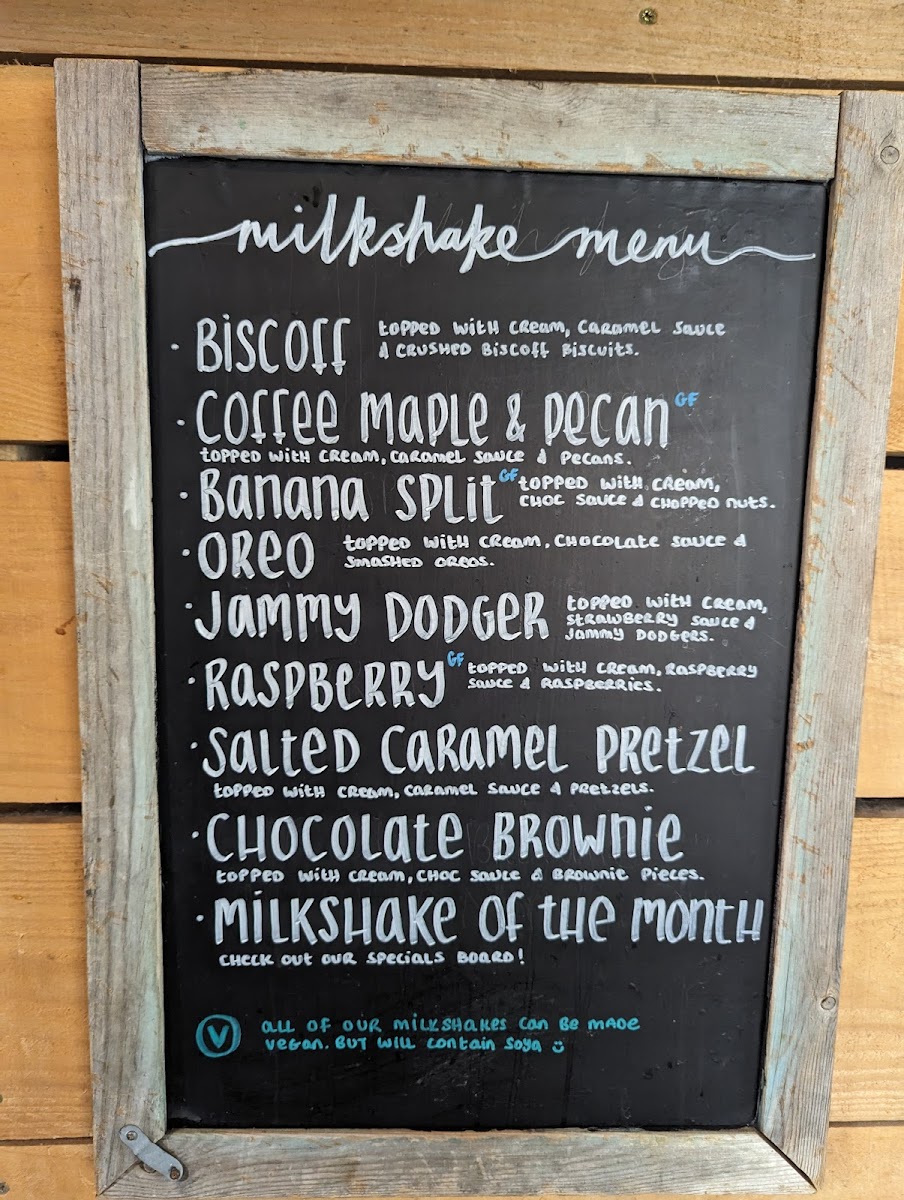 milkshake menu
· Biscoff topped with cream, caramel sauce
& crushed Biscoff Biscuits.
· Coffee Maple & Pecan GF
topped with cream, caramel sauce & pecans.
· Banana Split GF topped with cream,
choc sauce & chopped nuts.
· Oreo topped with cream, chocolate sauce &
smashed oreos.
· Jammy Dodger topped with cream,
strawberry sauce &
jammy dodgers.
· Raspberry GF topped with cream, raspberry
sauce & raspberries.
· Salted Caramel Pretzel
topped with cream, caramel sauce & pretzels.
· Chocolate Brownie
topped with cream, choc sauce & brownie pieces.
· Milkshake of the Month
check out our specials board!
V all of our milkshakes can be made
vegan. But will contain soya